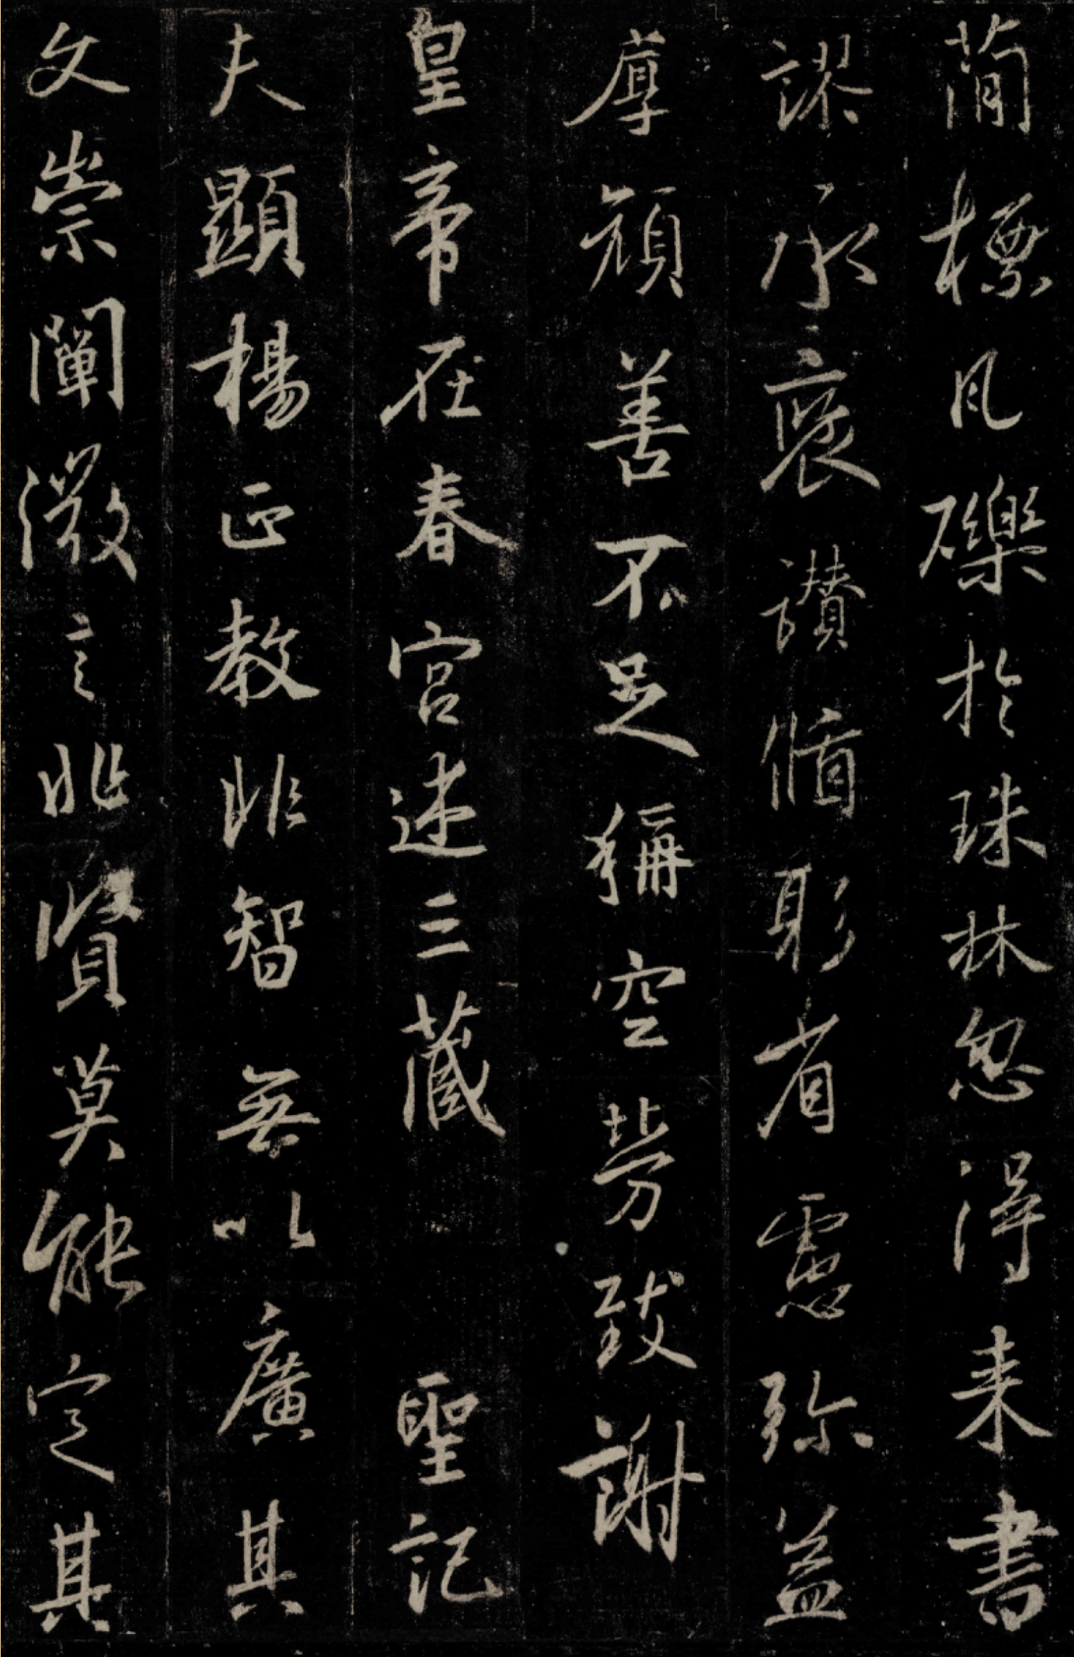 蕳標凡礫於珠林忽得来書
謬承褒讃循躬省慮弥益
厚顔善不足稱空勞致謝
皇帝在春宮述三藏 聖記
夫顯楊正教非智無以廣其
文崇闡微言非賢莫能定其